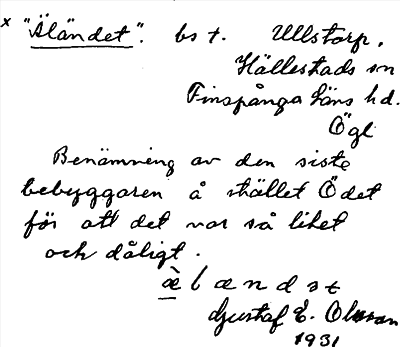 x "Äländet". bs t. Ullstorp.
Hällestads sn
Finspånga läns hd.
Ögl
Benämning av den siste
bebyggaren å stället Ödet
för att det var så litet
och dåligt.
æ̀ l æ n d ə t
Gustaf E. Olsson
1931